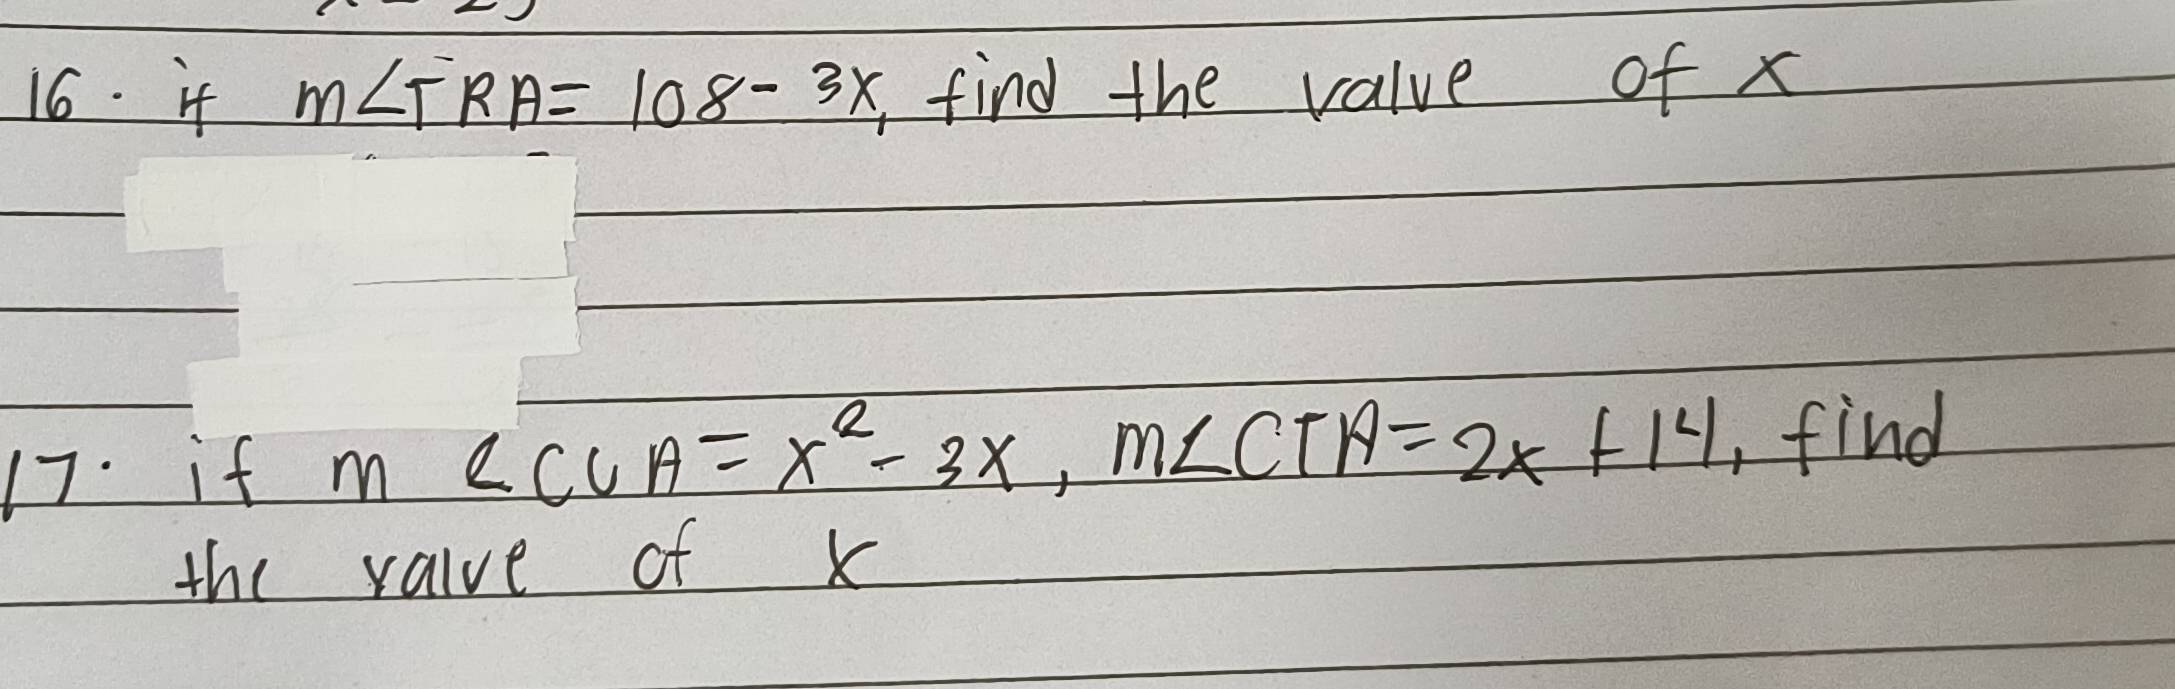 16. if m∠TRA= 108- 3x, find the value of x
17. if m ∠CUA= x²- 3x, m∠CTA= 2x +14, find
the value of x